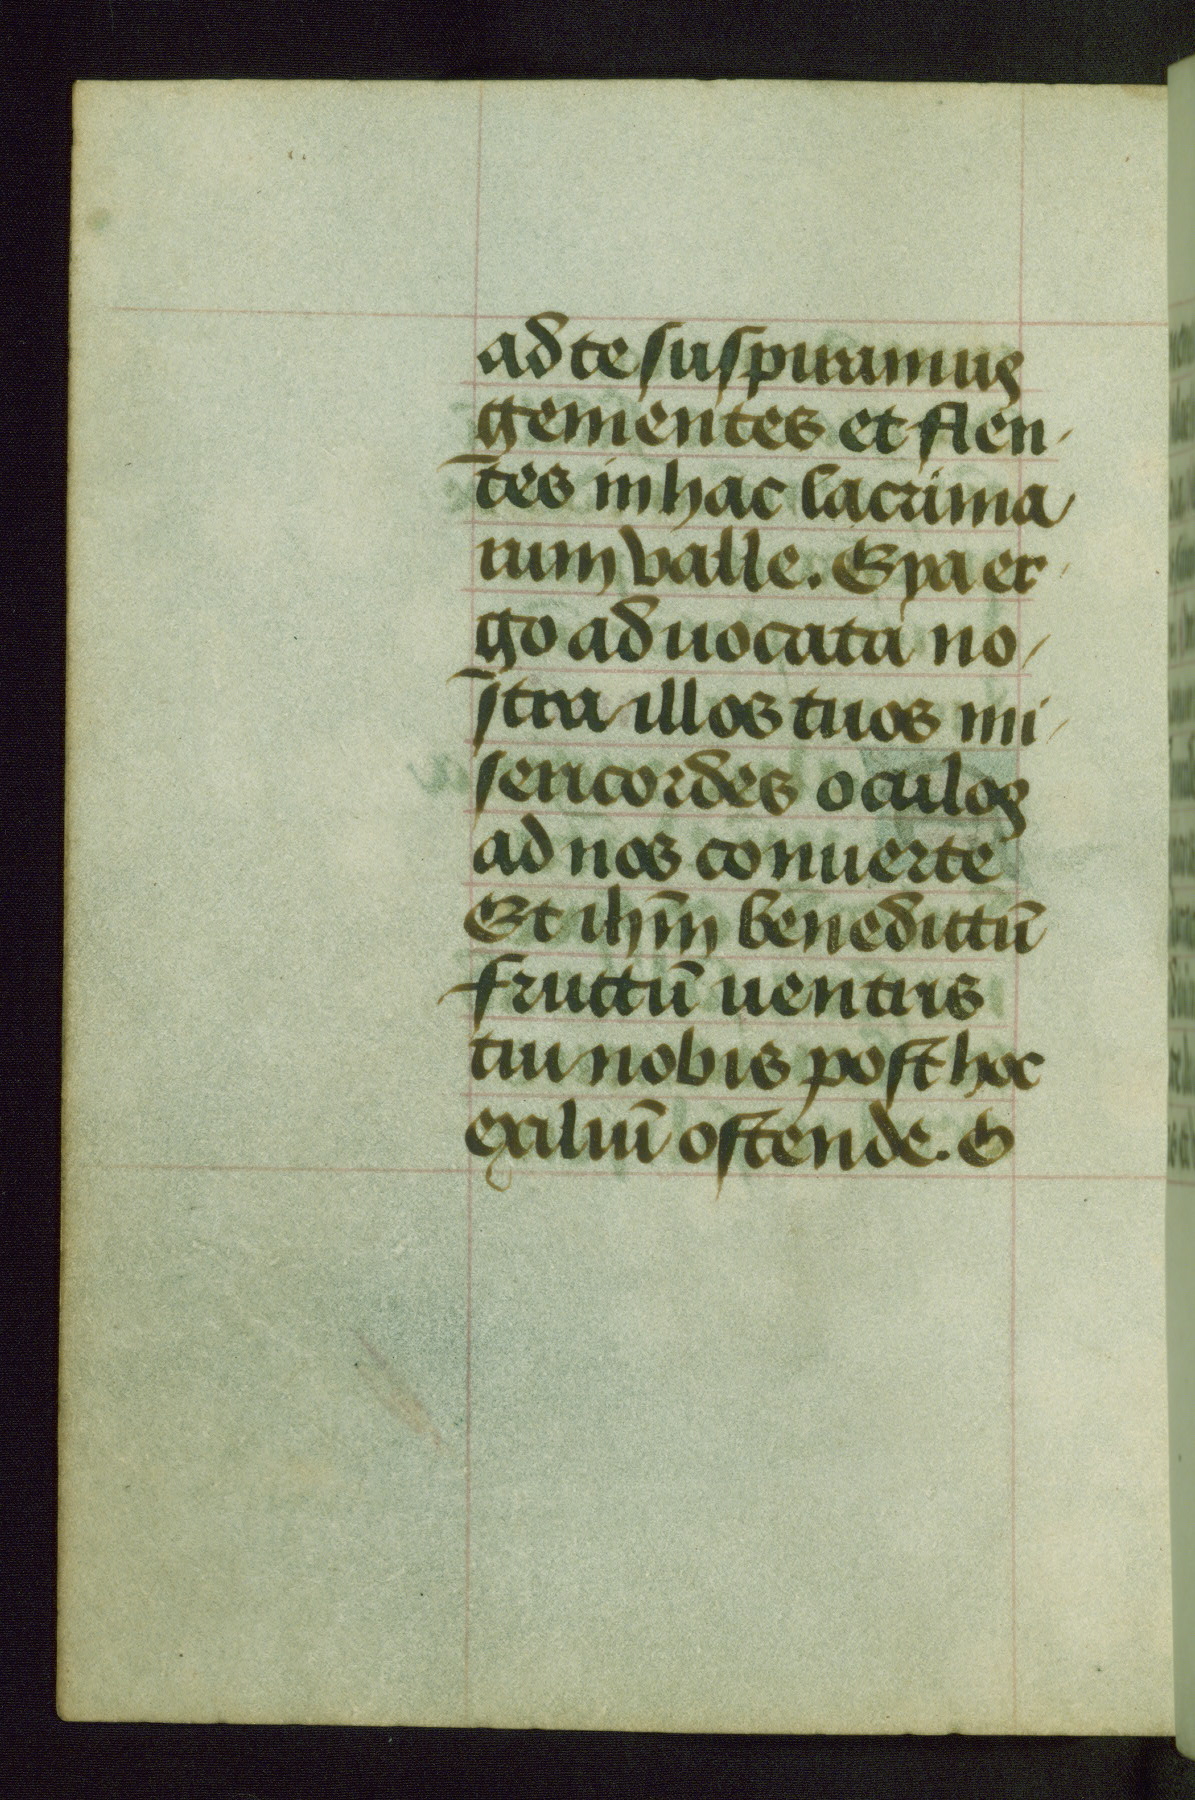 ad te suspiramus
gementes et flen-
tes in hac lacrima
rum valle. Eya er-
go aduocata no-
stra illos tuos mi-
sericordes oculos
ad nos conuerte
Et ihm̄ benedictū
fructū uentris
tui nobis post hoc
exiliū ostende. O